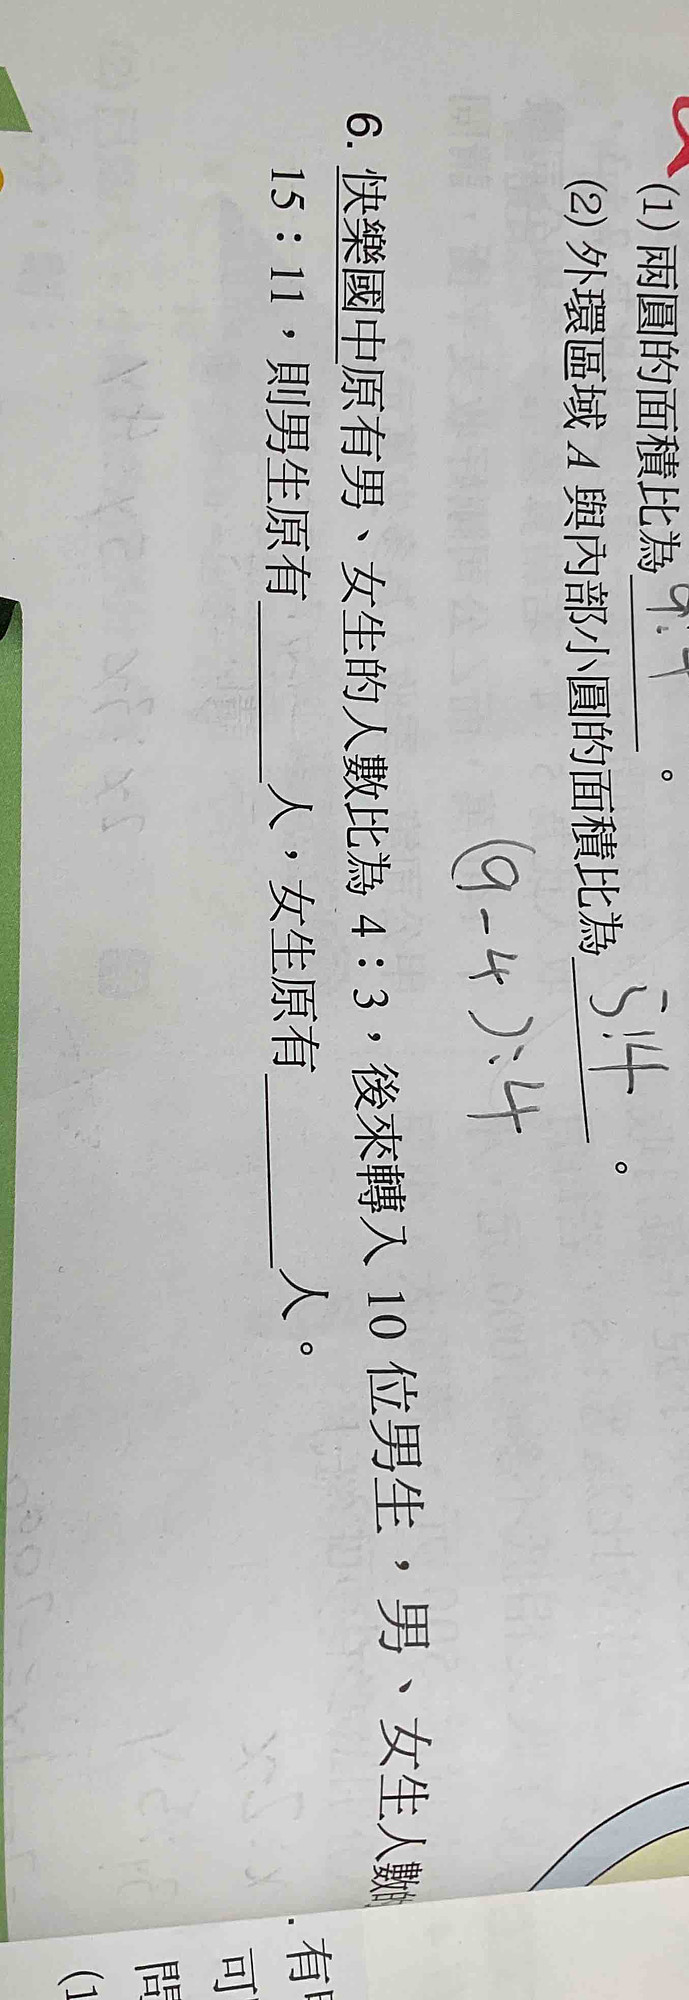 (1) 兩圓的面積比為 9:4 。
(2) 外環區域 A 與內部小圓的面積比為 5:4 。
(9-4):4
6. 快樂國中原有男、女生的人數比為 4:3,後來轉入 10 位男生,男、女生人數的
15:11,則男生原有______人,女生原有______人。
. 有
可
問
(1